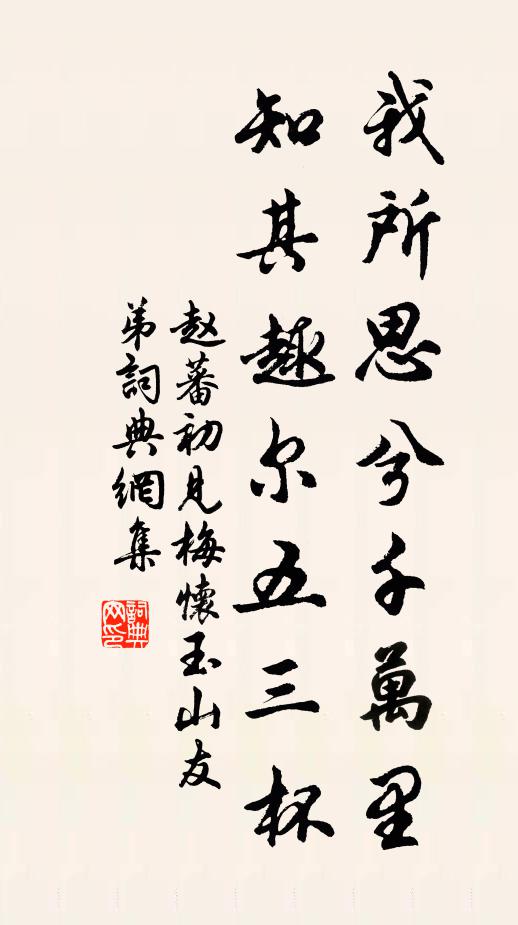 我所思兮千萬里
知其趣尔五三杯
赵蕃初見梅懷玉山友
弟詞典網集
詞典网印